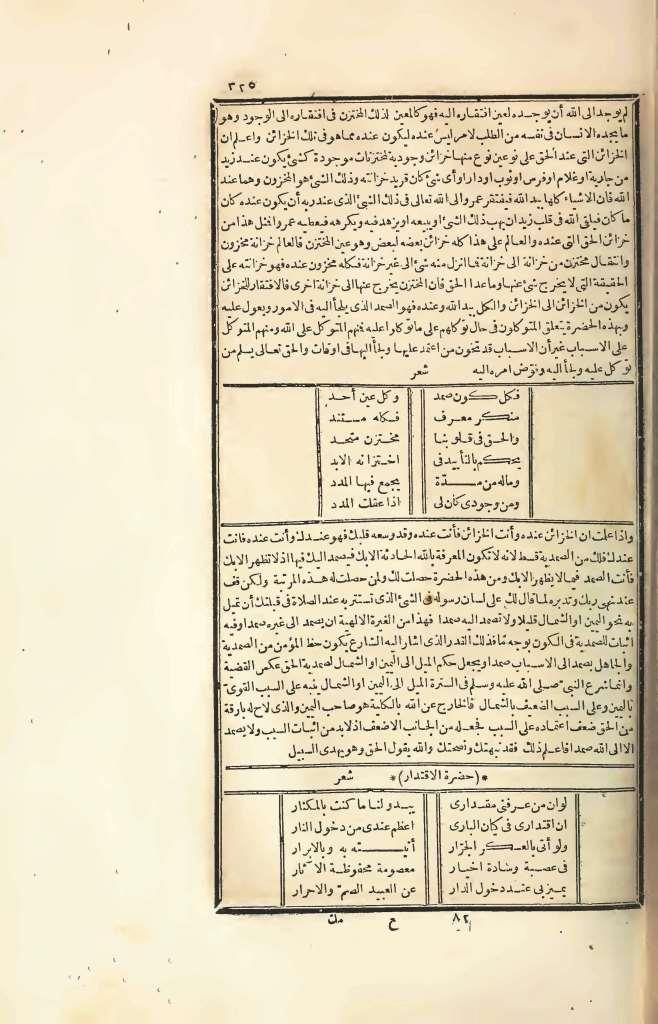 ٣٢٥
لم يوجد الى الله أن يوجده لعين افتقاره اليه فهو كالمعين لذلك المختزن فى افتقاره الى الوجود وهو
ما يجده الانسان فى نفسه من الطلب لامر ليس عنده ليكون عنده مما هو فى تلك الخزائن واعلم ان
الخزائن التى عند الحق على نوعين نوع منها خزائن وجودية لمختزنات موجودة كشئ يكون عند زيد
من جارية او غلام او فرس او ثوب او دار او أى شئ كان فزيد خزانته وذلك الشئ هو المخزون وهما عند
الله فان الاشياء كلها بيد الله فيفتقر عمرو الى الله تعالى فى ذلك الشئ الذى عند زيد أن يكون عنده كان
ما كان فيلقى الله فى قلب زيد ان يهب ذلك الشئ او يبيعه او يزهد فيه ويكرهه فيعطيه عمرا فمثل هذا من
خزائن الحق التى عنده والعالم على هذا كله خزائن بعضه لبعض وهو عين المختزن فالعالم خزانة مخزون
وانتقال مختزن من خزانة الى خزانة فما انزل منه شئ الى غير خزانة فكله مخزون عنده فهو خزانته على
الحقيقة التى لا يخرج شئ عنها وما عدا الحق فان المختزن يخرج عنها الى خزانة اخرى فالافتقار للخزائن
يكون من الخزائن الى الخزائن والكل بيد الله وعنده فهو الصمد الذى يلجأ اليه فى الامور ويعول عليه
وبهذه الحضرة يتعلق المتوكلون فى حال توكلهم على ما توكلوا عليه فمنهم المتوكل على الله ومنهم المتوكل
على الاسباب غير أن الاسباب قد تخون من اعتمد عليها ولجأ اليها فى اوقات والحق تعالى يسلم من
توكل عليه ولجأ اليه وفوّض امره اليه شعر
فكل كون صمد وكل عين أحد
منكر معرف فكله مستند
والحق فى قلوبنا مختزن متحد
يحكم بالتأييد فى اختزانه الابد
وماله من مدّة يجمع فيها المدد
ومن وجودى كان لى اذا عقلت المدد
واذا علمت ان الخزائن عنده وأنت الخزائن فأنت عنده وقد وسعه قلبك فهو عندك وأنت عنده فانت
عندك فلك من الصمدية قسط لانه لا تكون المعرفة بالله الحادثة الا بك فيصمد اليك فيها اذ لا تظهر الا بك
فأنت الصمد فيما لا يظهر الا بك ومن هذه الحضرة حصلت لك ولمن حصلت له هذه المرتبة ولكن قف
عند نهى ربك وتدبره لما قال لك على لسان رسوله فى الشئ الذى تستتر به عند الصلاة فى قبلتك أن تميل
به نحو اليمين او الشمال قليلا ولا تصمد اليه صمدا فهذا من الغيرة الالهية ان يصمد الى غيره صمد اوفيه
اثبات للصمدية فى الكون بوجه ما فذلك القدر الذى اشار اليه الشارع يكون حظ المؤمن من الصمدية
والجاهل يصمد الى الاسباب صمدا ويجعل حكم الميل الى اليمين او الشمال لصمدية الحق عكس القضية
وانما شرع النبى صلى الله عليه وسلم فى السترة الميل الى اليمين او الشمال ينبه على السبب القوى
باليمين وعلى السبب الضعيف بالشمال فالخارج عن الله بالكلية هو صاحب اليمين والذى لاح له بارقة
من الحق ضعف اعتماده على السبب فجعله من الجانب الاضعف اذ لا بد من اثبات السبب ولا يصمد
الا الى الله صمدا فاعلم ذلك فقد نبهتك ونصحتك والله يقول الحق وهو يهدى السبيل
*(حضرة الاقتدار)* شعر
لو ان من عرفنى مقدارى يبدو لنا ما كنت بالمكثار
ان اقتدارى فى كيان البارى اعظم عندى من دخول النار
ولو أتى بالعسكر الجرّار أتيته به وبالابرار
فى عصبة وسادة اخيار معصومة محفوظة الآثار
يميزبى عند دخول الدار عن العبيد الصمّ والاحرار
٨٢ ح مك